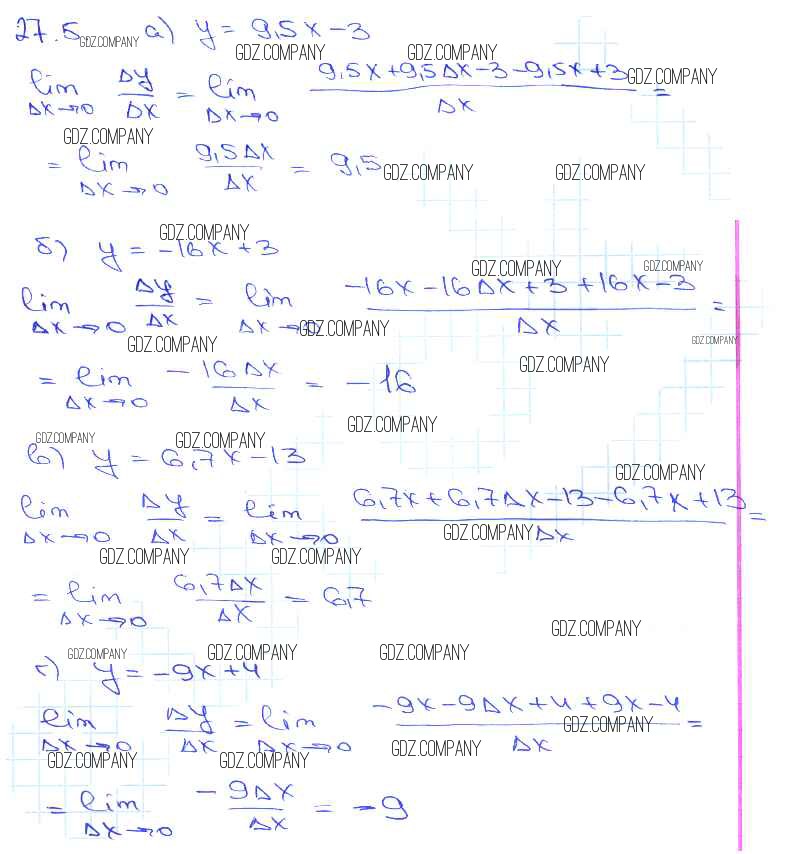 27.5. а) y = 9,5x - 3
lim Δx→0 Δy/Δx = lim Δx→0 (9,5x + 9,5Δx - 3 - 9,5x + 3)/Δx =
= lim Δx→0 9,5Δx/Δx = 9,5
б) y = -16x + 3
lim Δx→0 Δy/Δx = lim Δx→0 (-16x - 16Δx + 3 + 16x - 3)/Δx =
= lim Δx→0 -16Δx/Δx = -16
в) y = 6,7x - 13
lim Δx→0 Δy/Δx = lim Δx→0 (6,7x + 6,7Δx - 13 - 6,7x + 13)/Δx =
= lim Δx→0 6,7Δx/Δx = 6,7
г) y = -9x + 4
lim Δx→0 Δy/Δx = lim Δx→0 (-9x - 9Δx + 4 + 9x - 4)/Δx =
= lim Δx→0 -9Δx/Δx = -9
GDZ.COMPANY